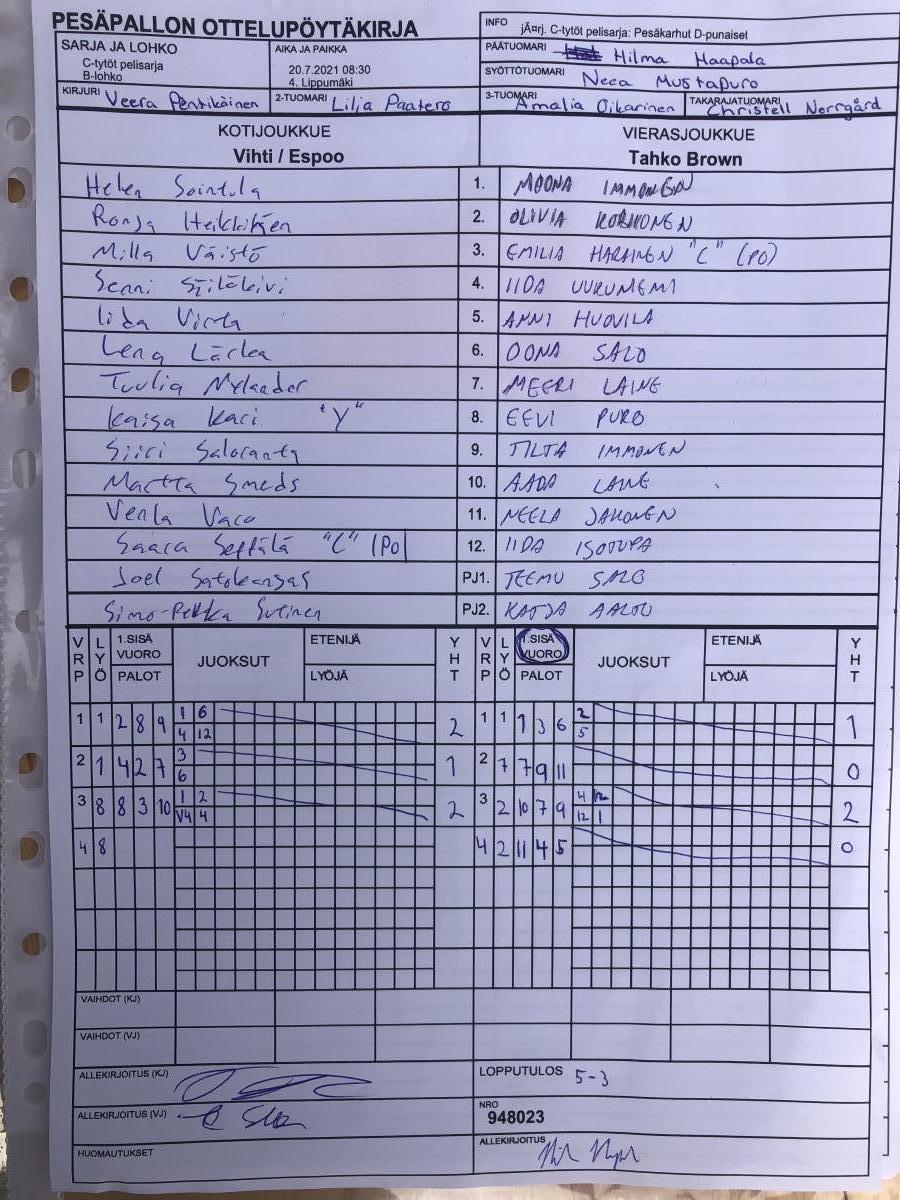 PESÄPALLON OTTELUPÖYTÄKIRJA
INFO
jÃ¤rj. C-tytöt pelisarja: Pesäkarhut D-punaiset
SARJA JA LOHKO
C-tytöt pelisarja
B-lohko
AIKA JA PAIKKA
20.7.2021 08:30
4. Lippumäki
PÄÄTUOMARI Hilma Haapala
SYÖTTÖTUOMARI Neea Mustapuro
KIRJURI Veera Penttikäinen
2-TUOMARI Lilja Paatero
3-TUOMARI Amalia Oikarinen
TAKARAJATUOMARI Christell Norrgård
KOTIJOUKKUE
Vihti / Espoo
VIERASJOUKKUE
Tahko Brown
Helen Sointula 1. MOONA IMMONEN
Ronja Heikkinen 2. OLIVIA KORHONEN
Milla Väistö 3. EMILIA HARAINEN "C" (PO)
Senni 4. IIDA UURUNIEMI
Iida Virta 5. ANNI HUOVILA
Lena 6. OONA SALO
Tuulia Nylander 7. MEERI LAINE
Kaisa Kari "Y" 8. EEVI PURO
Siiri Saloranta 9. TILTA IMMONEN
Martta Smeds 10. AADA LAINE
Venla 11. NEELA JAHONEN
Saara Seppälä "C" (PO) 12. IIDA ISOTUPA
Joel Satokangas PJ1. TEEMU SALO
Simo-Pekka Sutinen PJ2. KATJA AALTO
VRP LYÖ 1.SISÄ VUORO PALOT JUOKSUT ETENIJÄ LYÖJÄ YHT
VRP LYÖ 1.SISÄ VUORO PALOT JUOKSUT ETENIJÄ LYÖJÄ YHT
1 1 2 8 9 1 6 2 1 1 1 3 6 2 1
4 12 5
2 1 4 2 7 3 1 2 7 7 9 11 0
6
3 8 8 3 10 1 2 2 3 2 10 7 9 4 12 2
V4 4 12 1
4 8 4 2 11 4 5 0
VAIHDOT (KJ)
VAIHDOT (VJ)
ALLEKIRJOITUS (KJ)
LOPPUTULOS 5-3
ALLEKIRJOITUS (VJ)
NRO
948023
HUOMAUTUKSET
ALLEKIRJOITUS